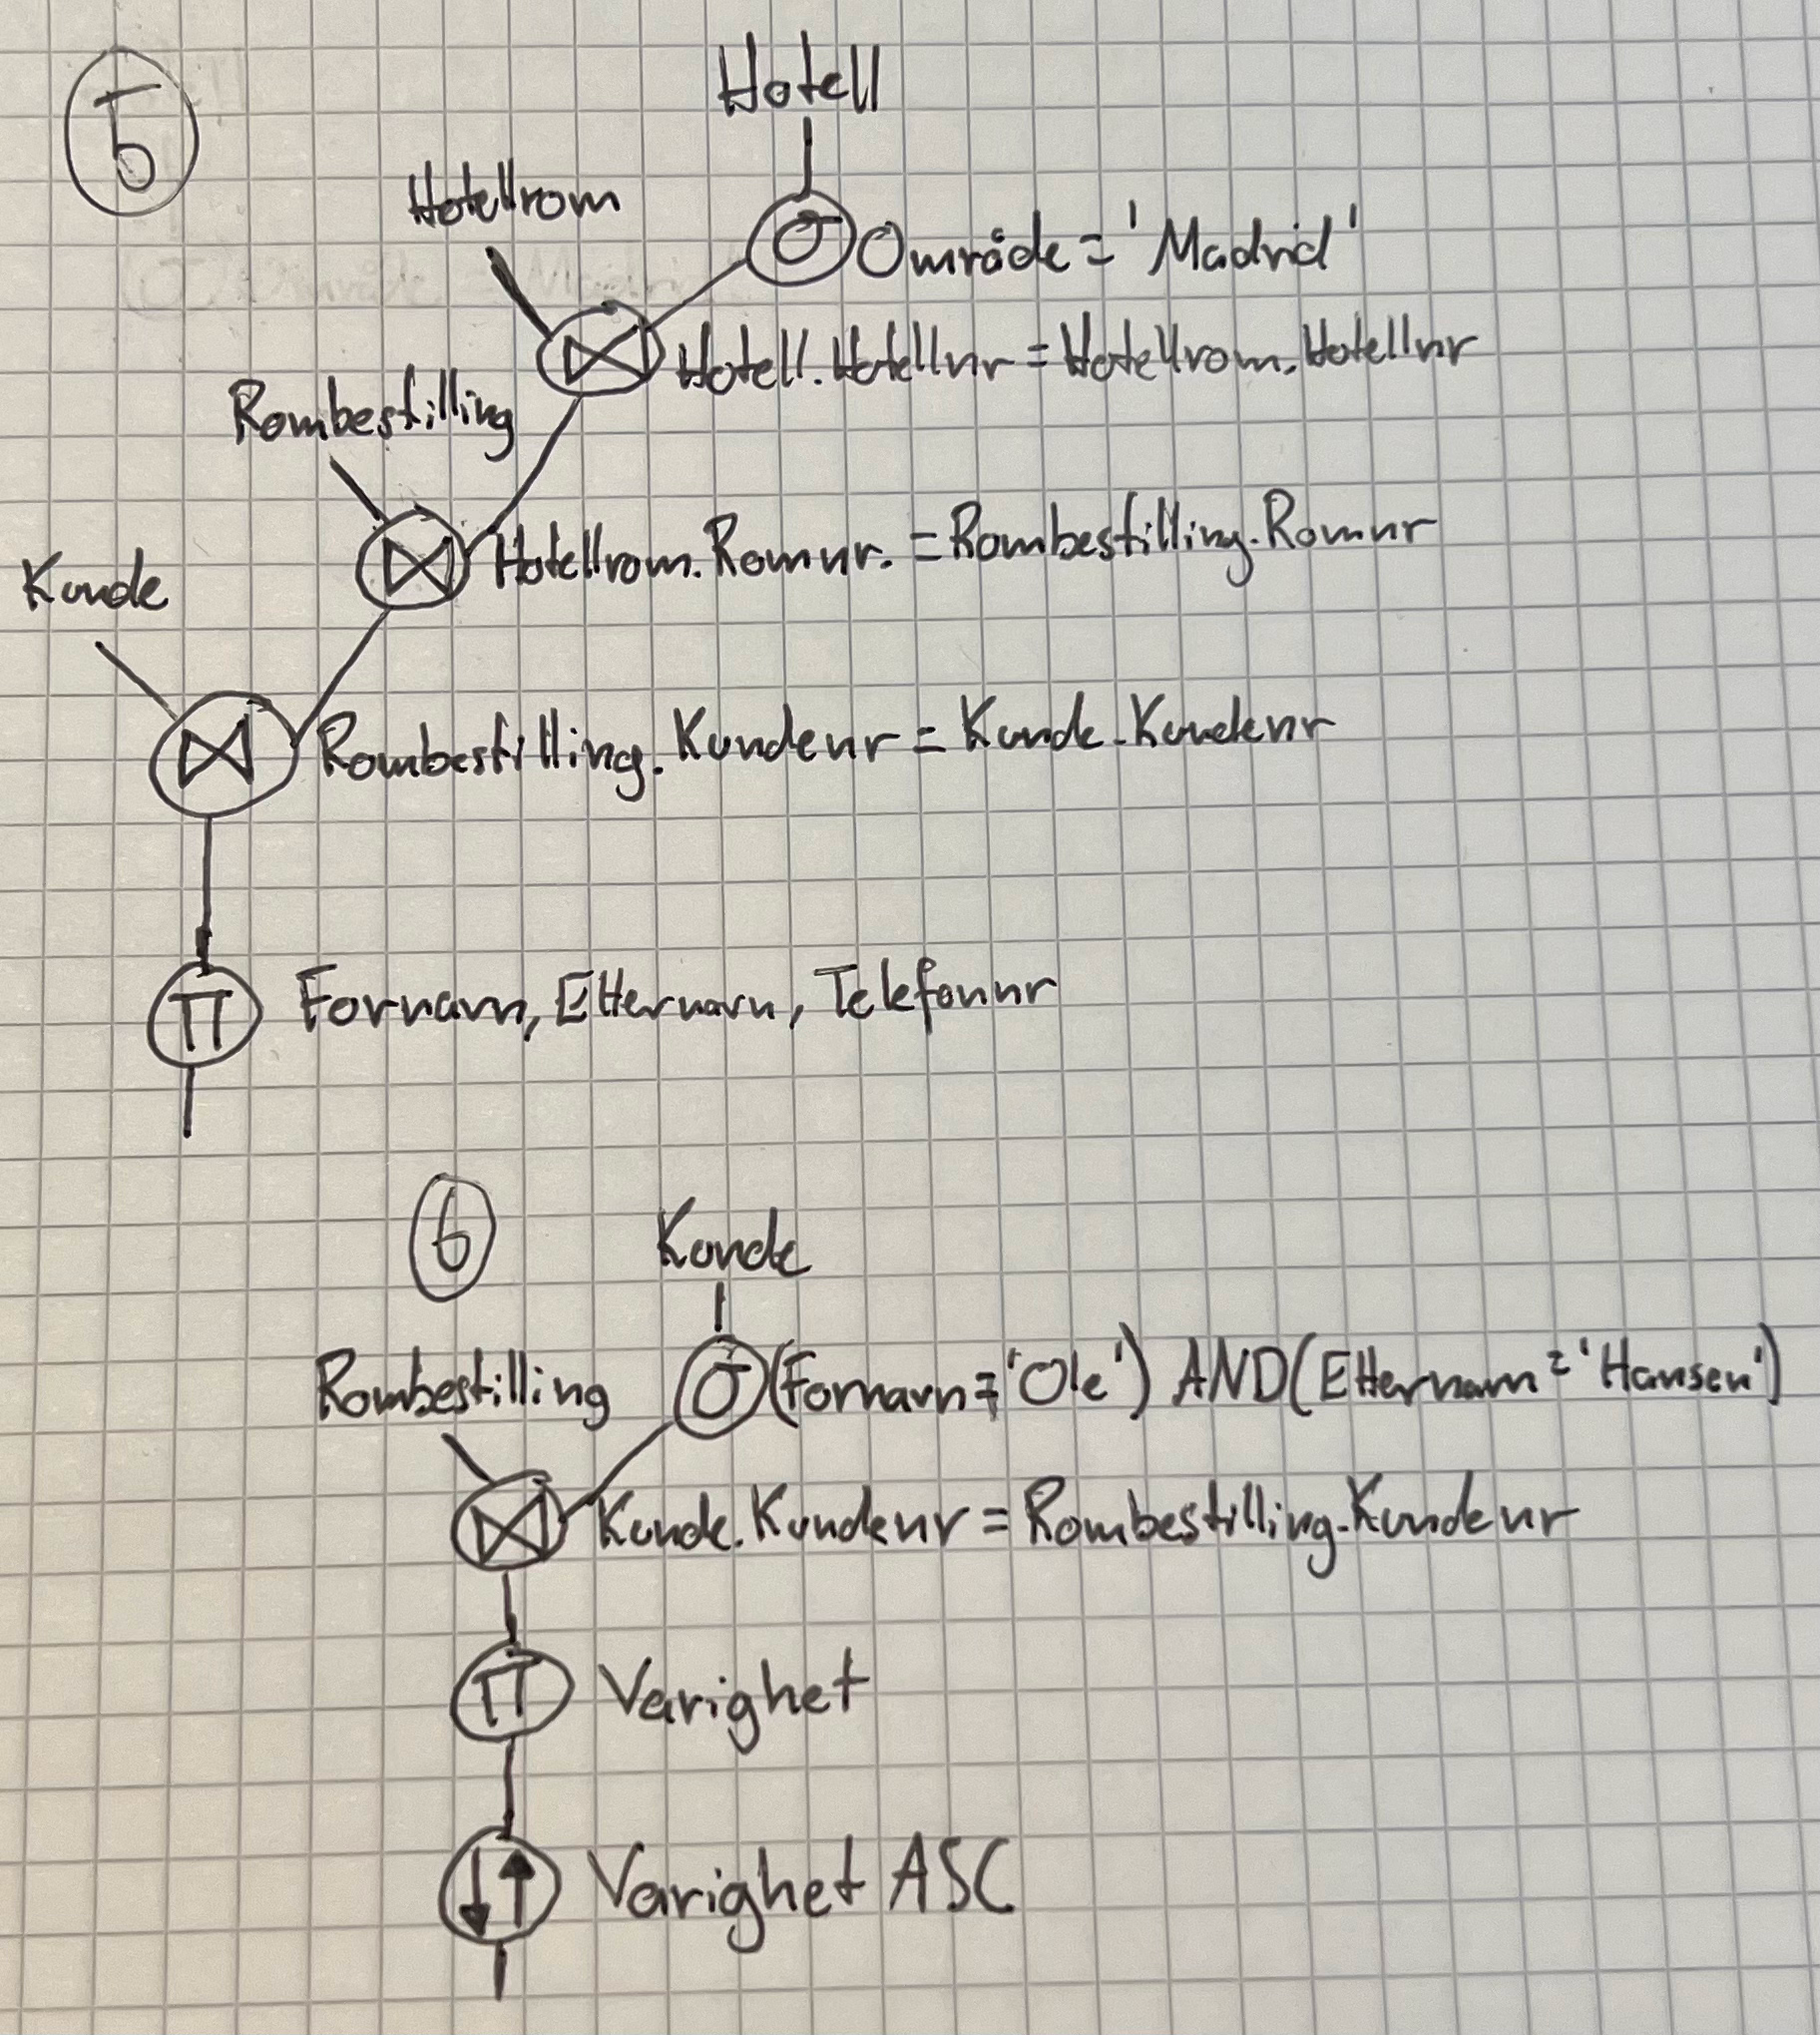 5
Hotell
Hotellrom
σ Område = 'Madrid'
⋈ Hotell.Hotellnr = Hotellrom.Hotellnr
Rombestilling
⋈ Hotellrom.Romnr. = Rombestilling.Romnr
Kunde
⋈ Rombestilling.Kundenr = Kunde.Kundenr
π Fornavn, Etternavn, Telefonnr
6
Kunde
Rombestilling σ (Fornavn = 'Ole') AND (Etternavn = 'Hansen')
⋈ Kunde.Kundenr = Rombestilling.Kundenr
π Varighet
↓↑ Varighet ASC